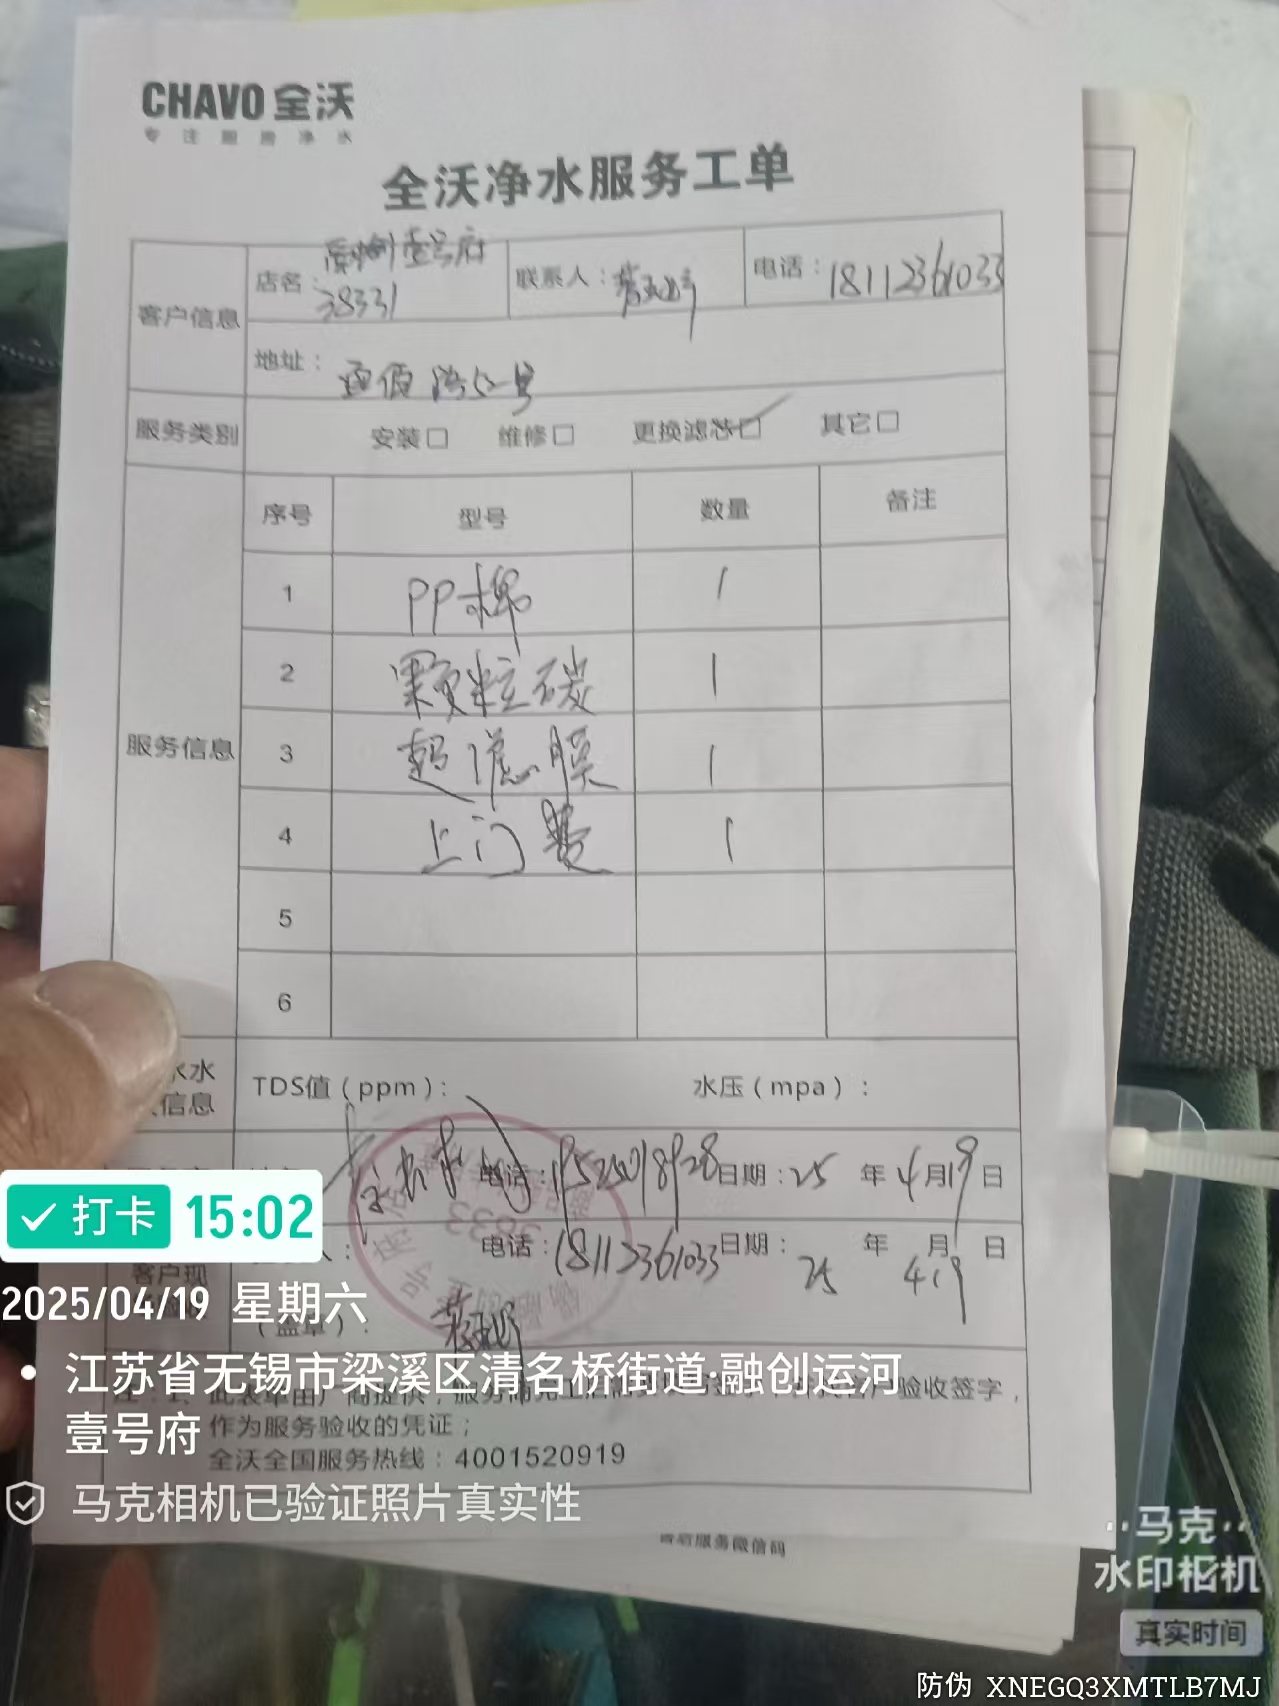 CHAVO 全沃
专注厨房净水
全沃净水服务工单
客户信息
店名： 壹号府
38331
联系人：
电话：18112361033
地址：
服务类别
安装□ 维修□ 更换滤芯□ 其它□
服务信息
序号 型号 数量 备注
1 PP棉 1
2 颗粒碳 1
3 超滤膜 1
4 上门费 1
5
6
水
信息
TDS值（ppm）： 水压（mpa）：
电话： 日期：25 年 4 月 19 日
电话：18112361033 日期：25 年 4 月 19 日
客户现
（盖章）：
作为服务验收的凭证；
全沃全国服务热线：4001520919
打卡 15:02
2025/04/19 星期六
江苏省无锡市梁溪区清名桥街道·融创运河
壹号府
马克相机已验证照片真实性
服务微信码
马克
水印相机
真实时间
防伪 XNEGQ3XMTLB7MJ